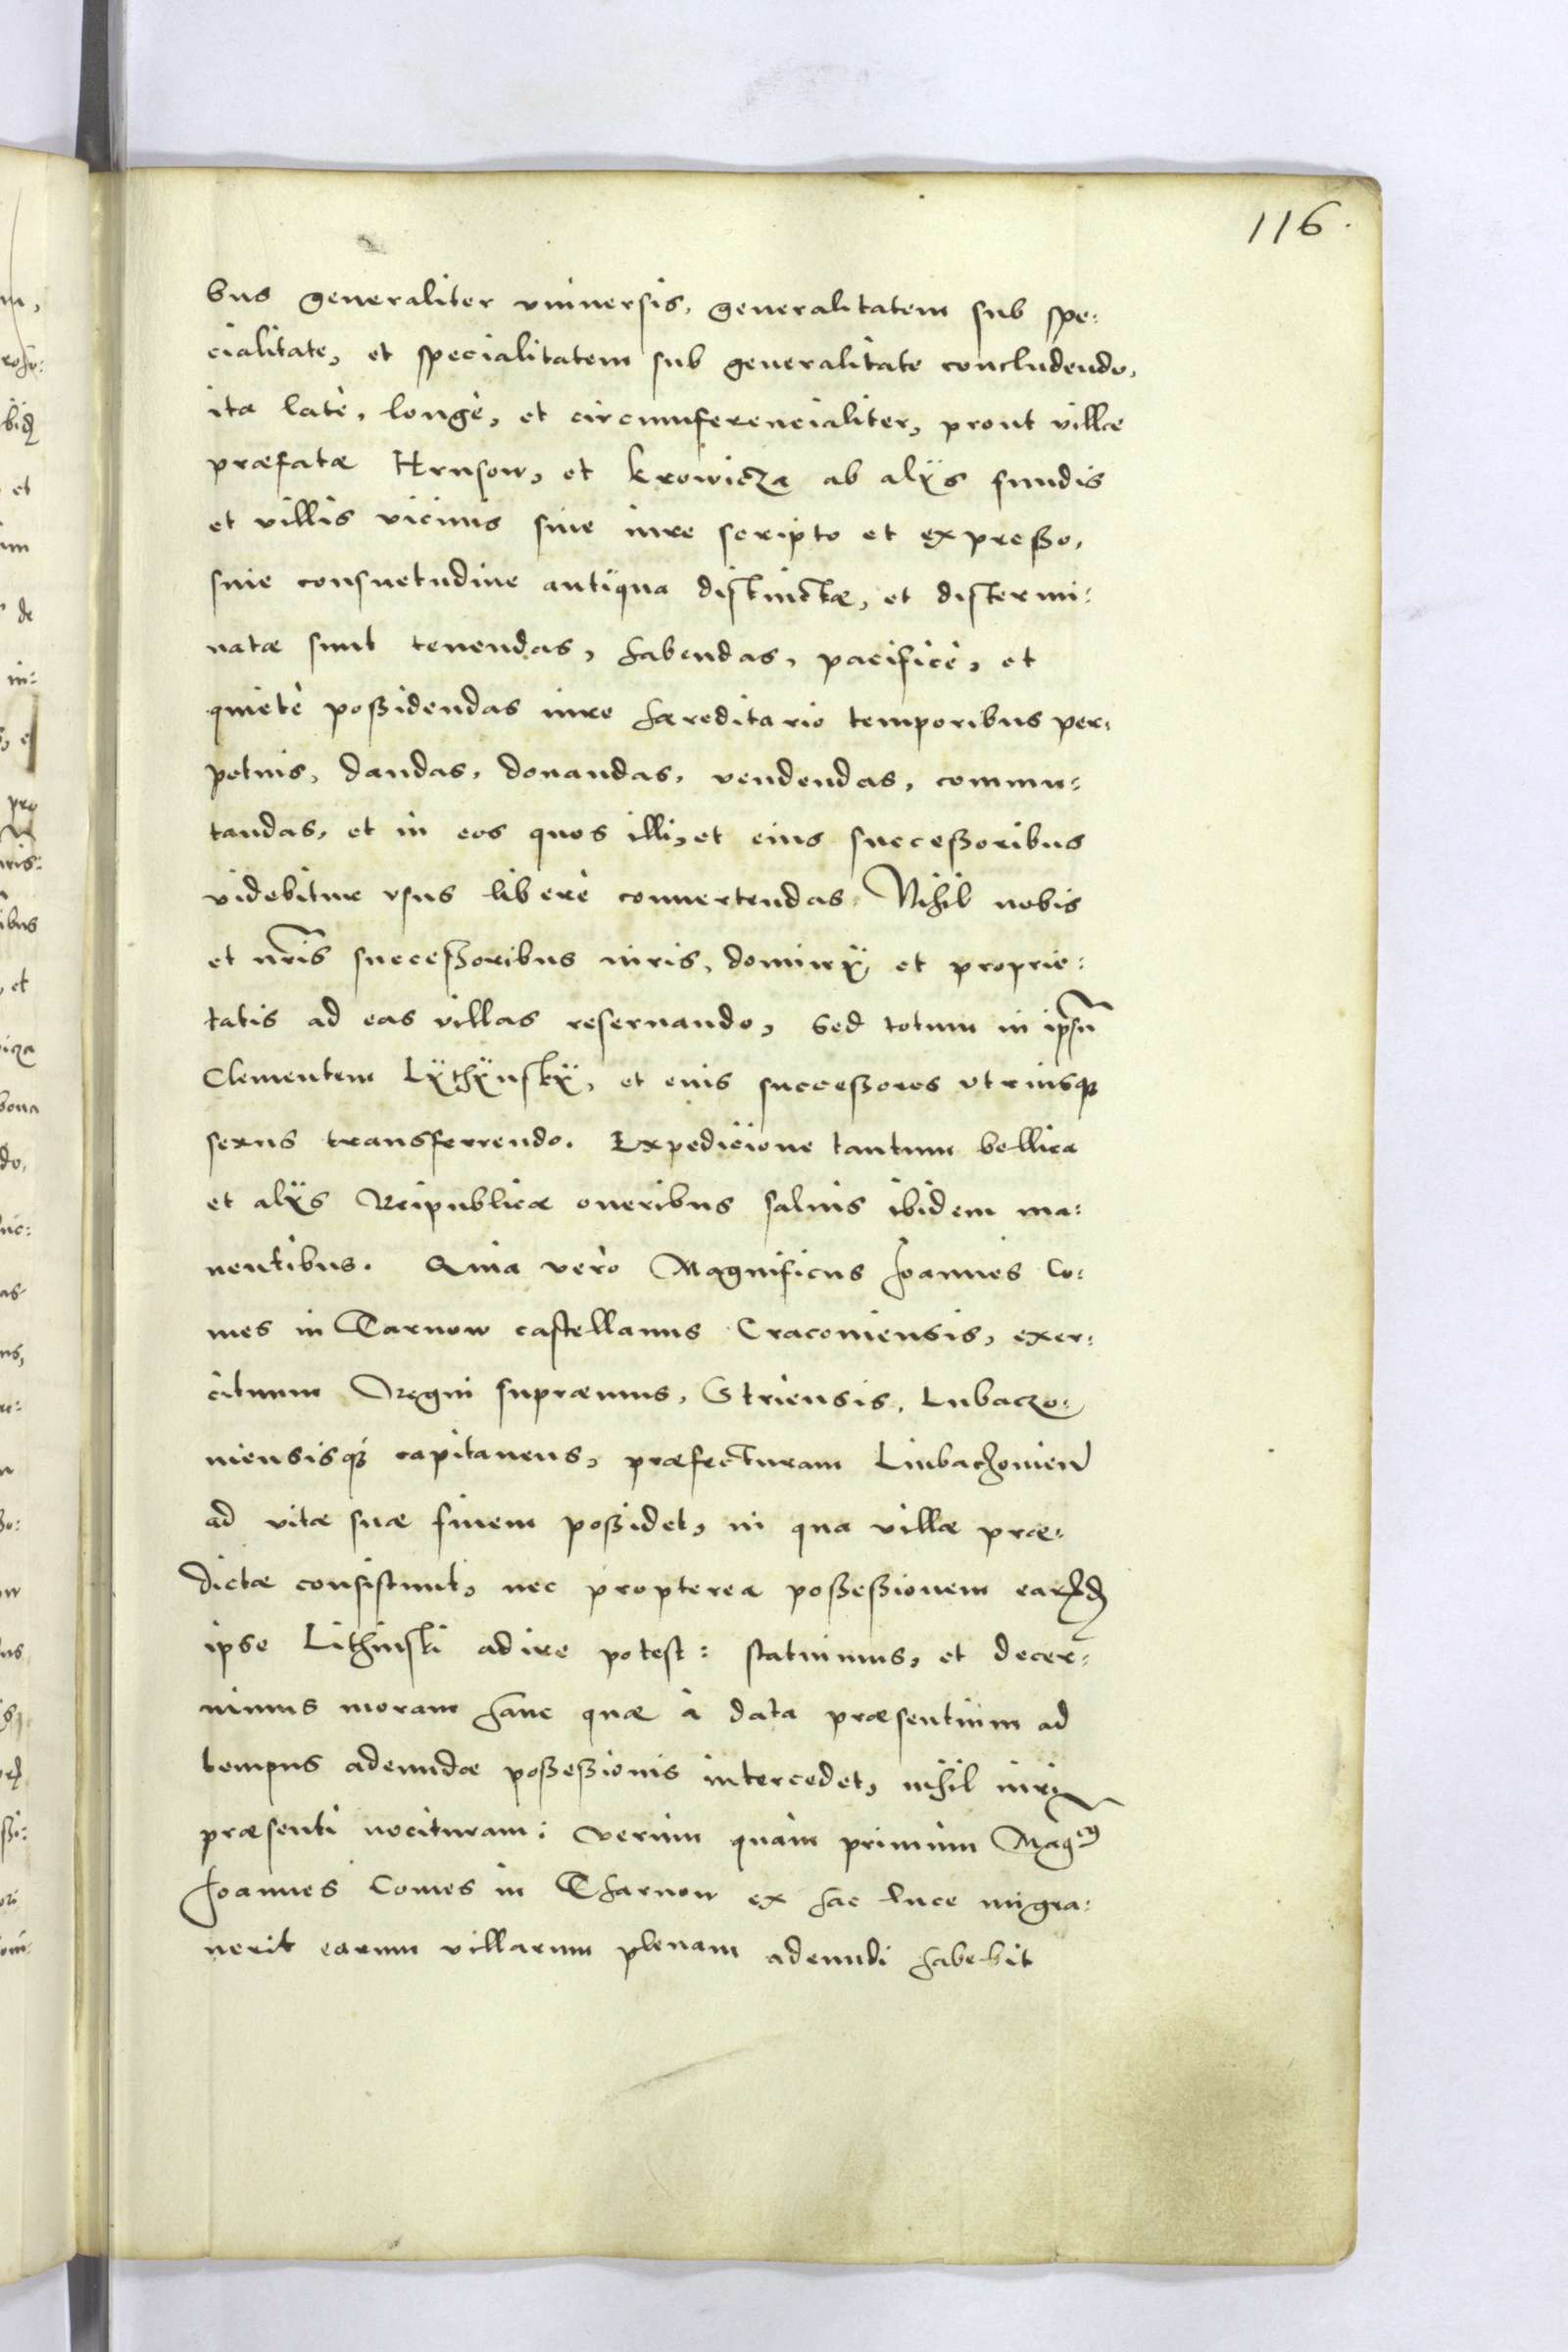 116.
bus generaliter vniuersis, generalitatem sub spe:
cialitate, et specialitatem sub generalitate concludendo,
ita latè, longè, et circumferencialiter, prout villæ
præfatæ Hrusow, et Krowicza ab alÿs fundis
et villis vicinis siue iure scripto et expreßo,
siue consuetudine antiqua distinctæ, et distermi:
natæ sunt tenendas, habendas, pacificè, et
quietè poßidendas iure hæreditario temporibus per:
petuis, dandas, donandas, vendendas, commu:
tandas, et in eos quos illi, et eius succeßoribus
videbitur vsus liberè conuertendas. Nihil nobis
et nr̃is succeßoribus iuris, dominÿ, et proprie:
tatis ad eas villas reseruando, Sed totum in ipsũ
Clementem Lÿthÿnskÿ, et euis succeßores vtriusq3
sexus transferrendo. Expedicione tantum bellica
et alÿs Reipublicæ oneribus saluis ibidem ma:
nentibus. Quia vero Magnificus Joannes Co:
mes in Tarnow castellanus Cracouiensis, exer:
cituum Regni supræmus, Striensis, Lubaczo:
uiensisq3 capitaneus, præfecturam Liubachouien̄
ad vitæ suæ finem poßidet, in qua villæ præ:
dictæ consistunt, nec propterea poßeßionem earūd
ipse Lithinski adire potest: statuimus, et decer:
nimus moram hanc quæ à data præsentium ad
tempus adeundæ poßeßionis intercedet, nihil iuri
præsenti nocituram: verùm quàm primùm Mag.cus
Joannes Comes in Tharnow ex hac luce migra:
uerit earum villarum plenam adeundi habebit